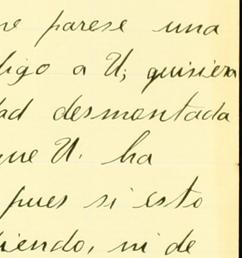 parese una
digo a U, quisiera
desmontada
que U. ha
pues si esto
ni de